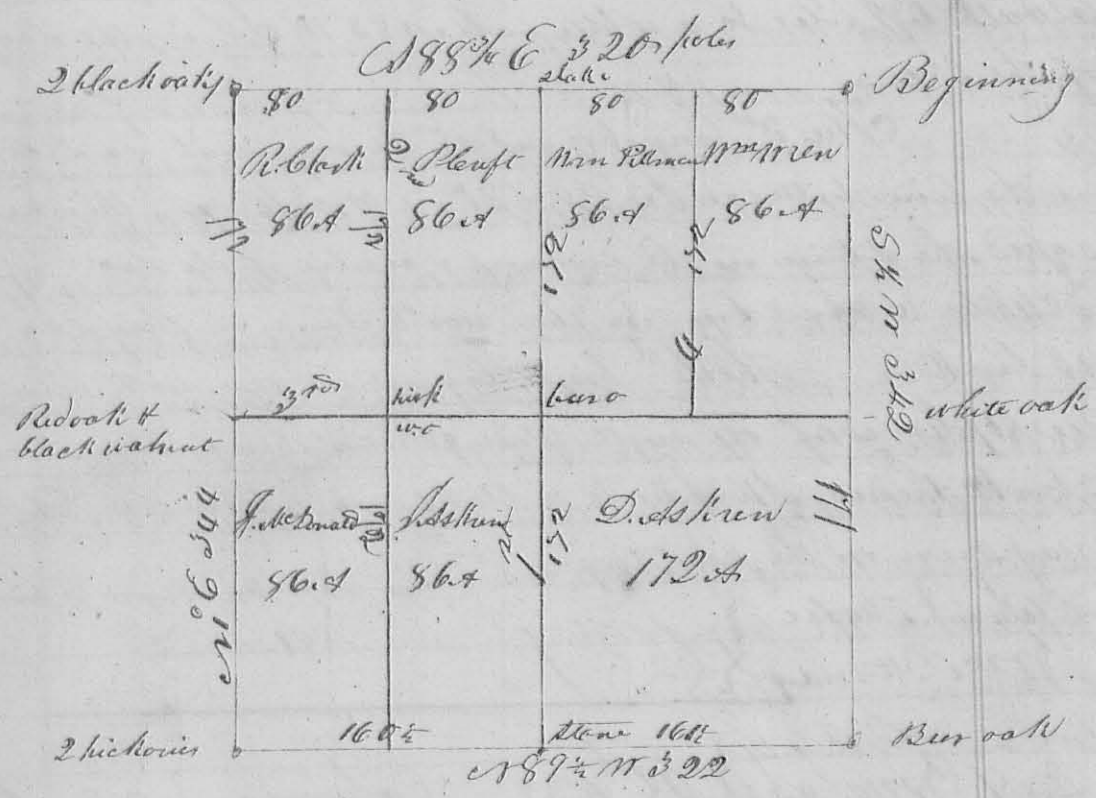 N 88 3/4 E 320 poles
2 black oaks
stake
Beginning
80 80 80 80
R. Clark
P Cluft
Wm Pittman
Wm Wren
86 A
86 A
86 A
86 A
172
172
172
172
S 1/4 W 342
3rds
hick
burr o
Red oak &
black walnut
w.o
white oak
J. McDonald
J Askren
D. Askren
172
171
86 A
86 A
172 A
N 1° E 342
2 hickories
160 1/2
stone 161 1/2
Bur oak
N 89 1/2 W 322